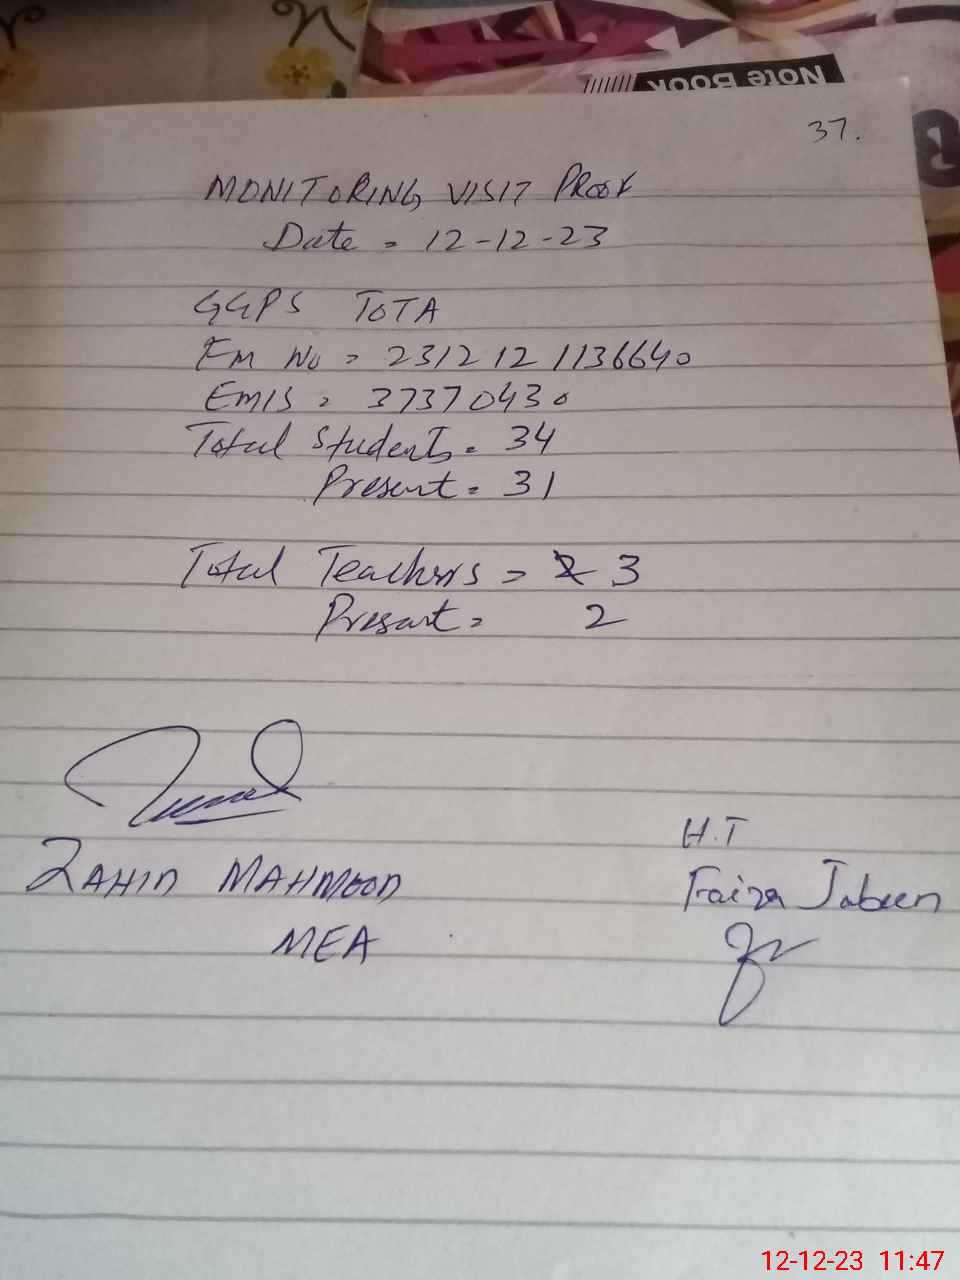 Note Book
37.
MONITORING VISIT PROOF
Date = 12-12-23
GGPS TOTA
Em No = 2312121136640
EMIS = 37370430
Total Students = 34
Present = 31
Total Teachers = 2 3
Present = 2
ZAHID MAHMOOD
MEA
H.T
Faiza Jabeen
12-12-23 11:47